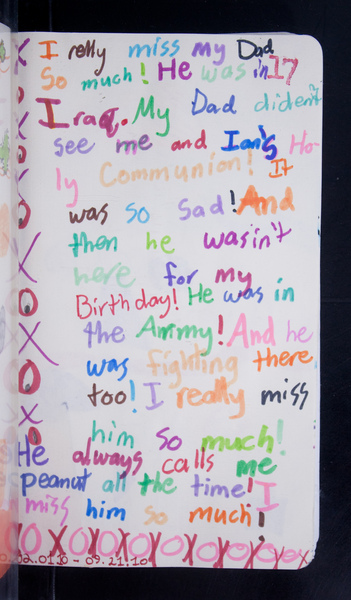 I relly miss my Dad
So much! He was in 17
Iraq. My Dad dident
see me and Ian's Ho-
ly Communion! It
was so sad! And
then he wasin't
here for my
Birthday! He was in
the Ammy! And he
was fighting there
too! I really miss
him so much!
He always calls me
peanut all the time! I
miss him so much!
XOXOXOXOXOXOX
02.01.10 - 09.21.10